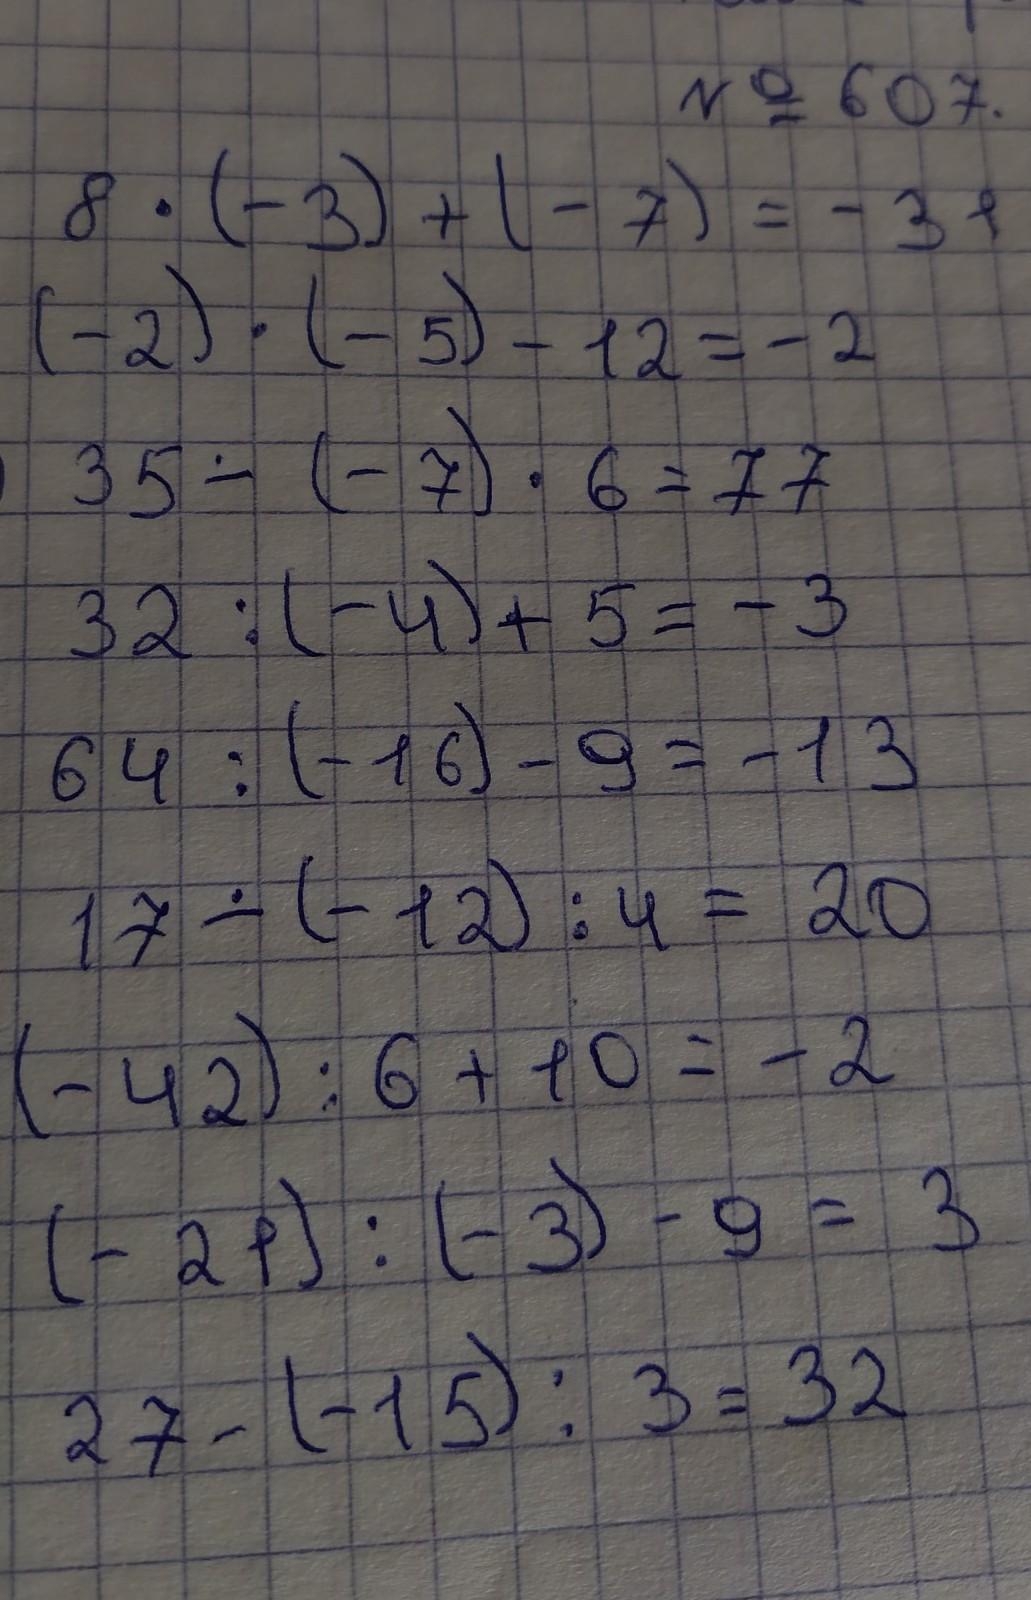 № 607.
8 · (-3) + (-7) = -31
(-2) · (-5) - 12 = -2
) 35 ÷ (-7) · 6 = 77
32 : (-4) + 5 = -3
64 : (-16) - 9 = -13
17 ÷ (-12) : 4 = 20
(-42) : 6 + 10 = -2
(-21) : (-3) - 9 = 3
27 - (-15) : 3 = 32